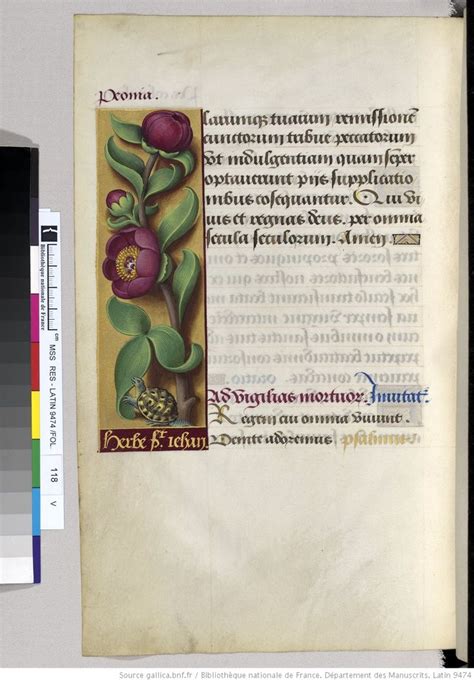 Peonia.
larumque tuarum remissionē
cunctorum tribue peccatorum
vt indulgentiam quam semper
optauerunt pijs supplicatio
nibus cōsequantur. Qui vi
uis et regnas deus. per omnia
secula seculorum. Amen
Ad Vigilias mortuor. Inuitat.
Regem cui omnia viuunt.
Venite adoremus psalmus
herbe sᵗ iehan
Bibliothèque nationale de France
MSS RES - LATIN 9474 /FOL
118 V
Source gallica.bnf.fr / Bibliothèque nationale de France. Département des Manuscrits. Latin 9474